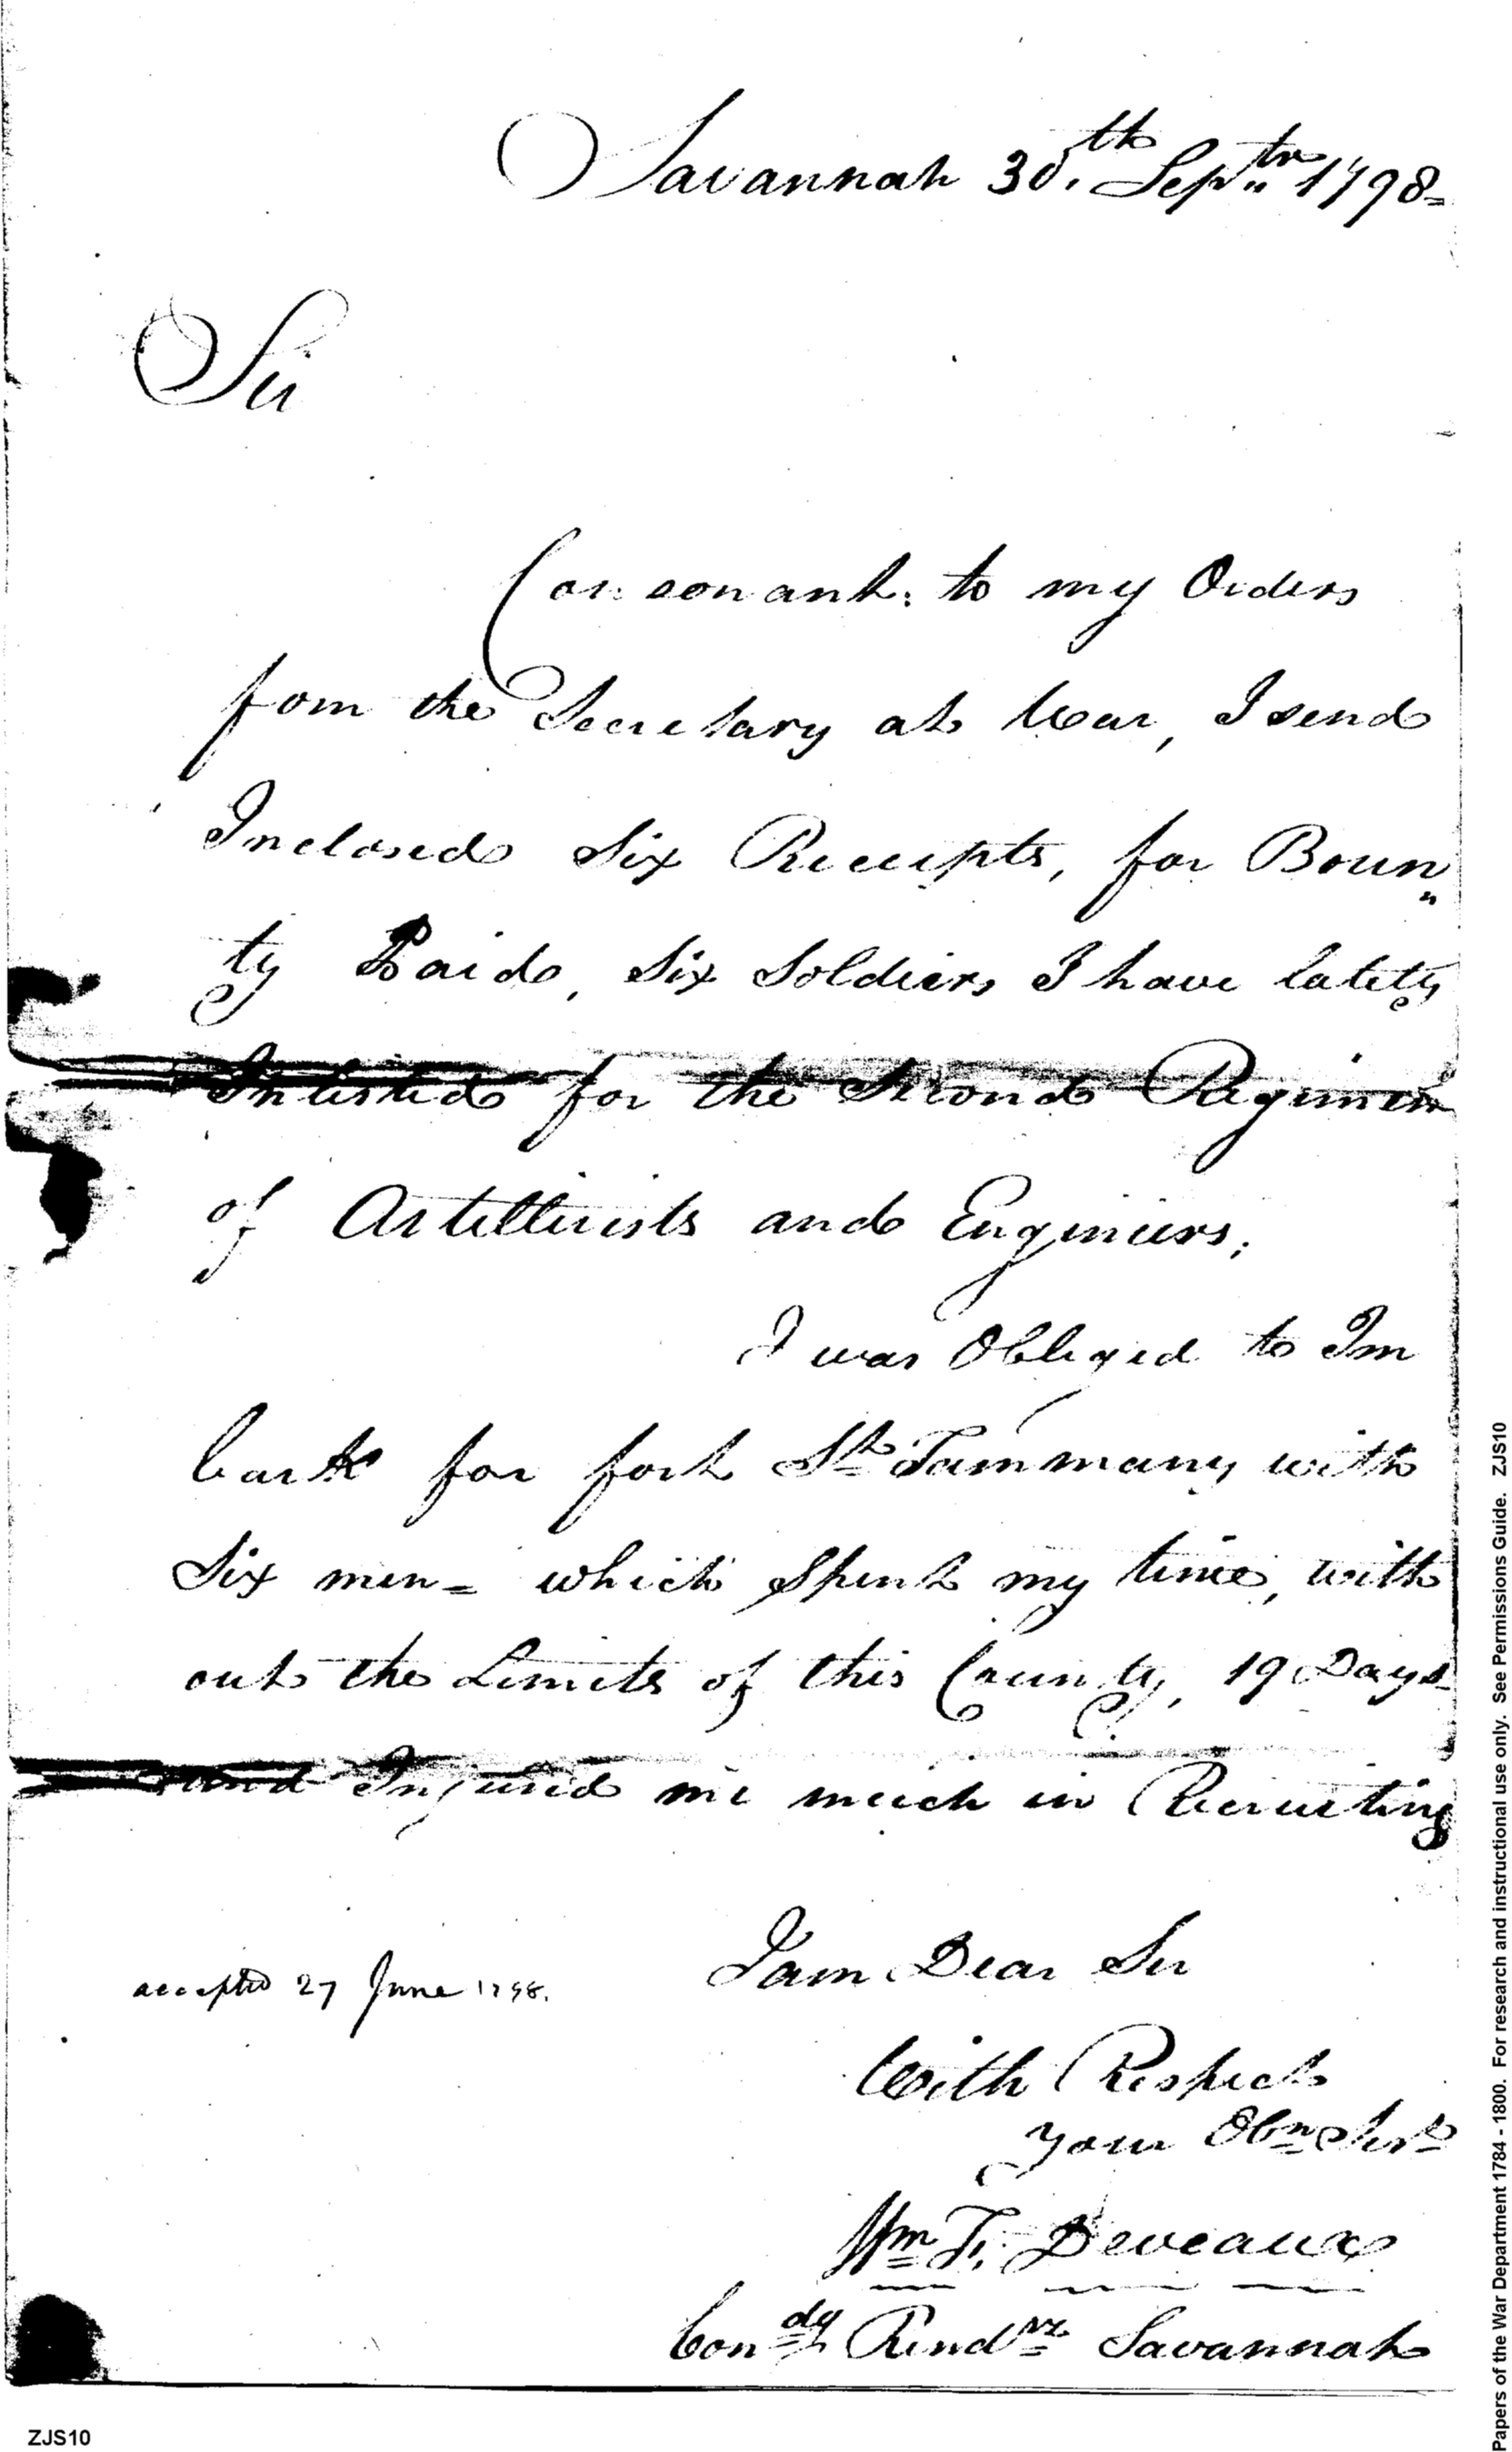 Savannah 30th. Septbr 1798-
Sir
Consonant: to my Orders
fom the Secretary at War, I send
Inclosed Six Receipts, for Boun
ty Paid, Six Soldiers I have lately
Inlisted for the Second Regimen
of Artillerists and Engineers,
I was Obliged to Im
bark for fort St Tammany with
Six men= which Spent my time, with
out the Limits of this County, 19 Days
and Injured me much in Recruiting
accepted 27 June 1798.
I am Dear Sir
With Respect
your Obn Servt
Wm F. Deveaux
Condg Rendvz Savannah
ZJS10
Papers of the War Department 1784 - 1800. For research and instructional use only. See Permissions Guide. ZJS10